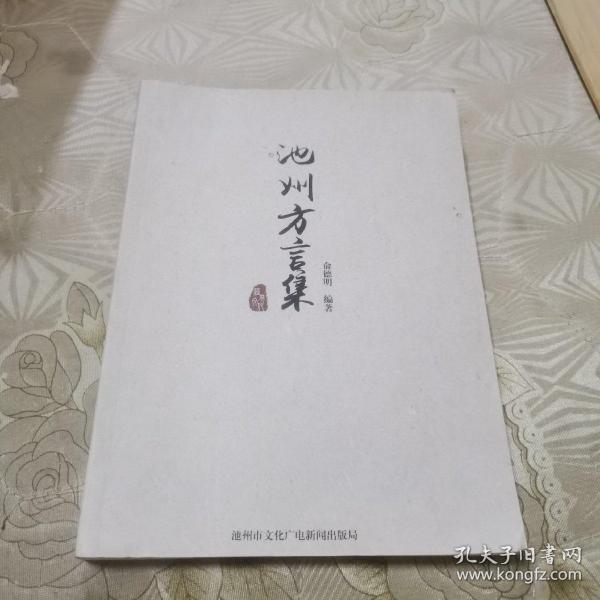 池州方言集
俞德明 编著
池州市文化广电新闻出版局
孔夫子旧書网
www.kongfz.com